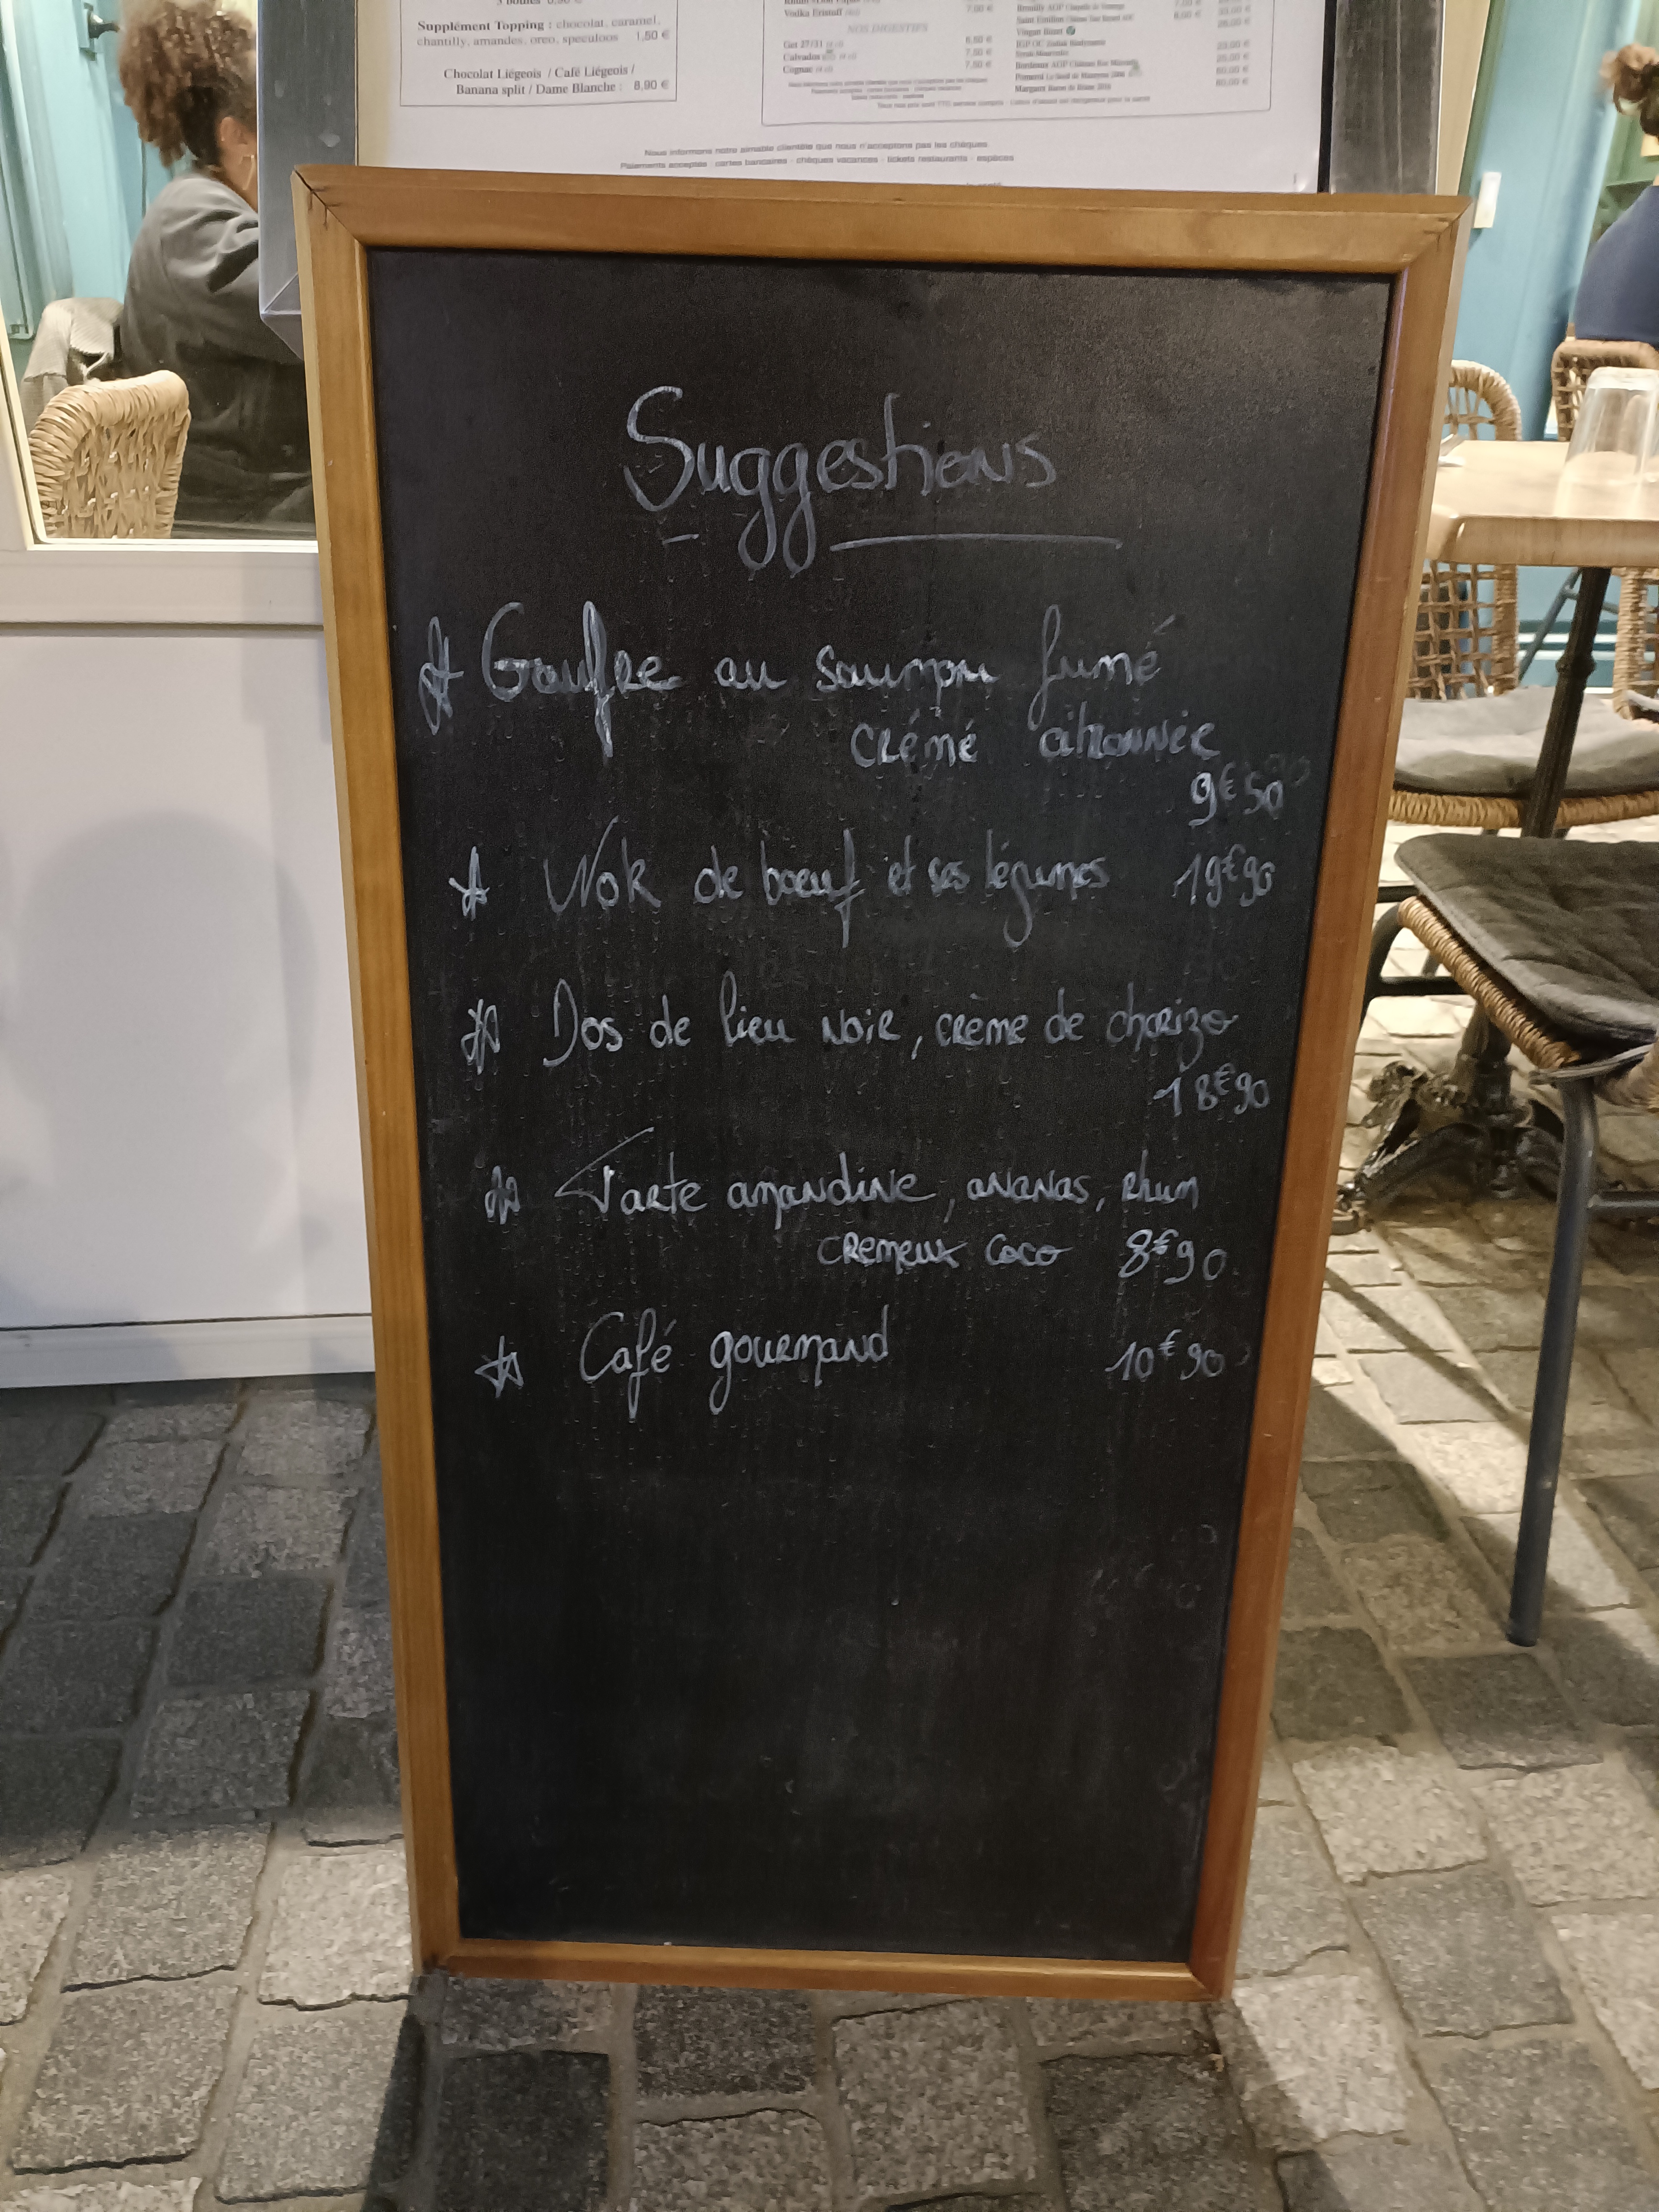 Supplément Topping : chocolat, caramel,
chantilly, amandes, oreo, speculoos 1,50 €
Chocolat Liégeois / Café Liégeois /
Banana split / Dame Blanche : 8,90 €
7,00 €
NOS DIGESTIFS
Get 27/31
Calvados
Cognac
Nous informons notre aimable clientèle que nous n'acceptons pas les chèques
Paiements acceptés : cartes bancaires - chèques vacances - tickets restaurants - espèces
Suggestions
Gaufre au saumon fumé
crémé citronnée
9€50
Wok de boeuf et ses légumes 19€90
Dos de lieu noir, crème de chorizo
18€90
Tarte amandine, ananas, rhum
cremeux coco 8€90
Café gourmand 10€90